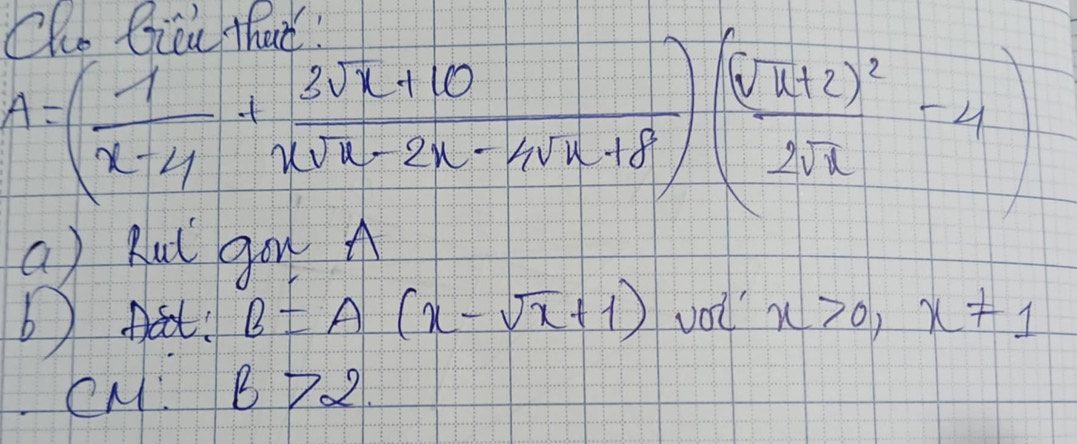 Cho biểu thức:
A = (1/(x-4) + (3√x+10)/(x√x-2x-4√x+8)) ((√x+2)²/(2√x) - 4)
a) Rút gọn A
b) Đặt: B = A (x-√x+1) với x>0, x≠1
CM: B>2.